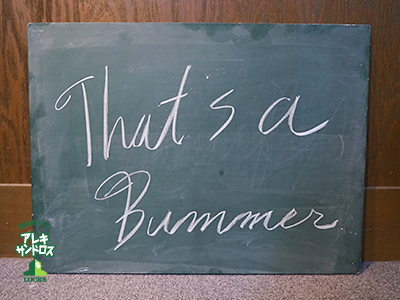 That's a
Bummer
アレキ
サンドロス
LOCKS